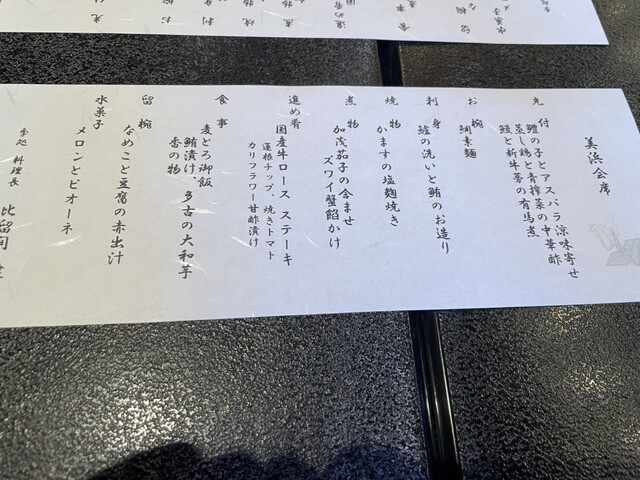 美浜会席
先付
鱧の子とアスパラ涼味寄せ
蒸し鶏と青搾菜の中華酢
鰻と新牛蒡の有馬煮
お椀
鯛素麺
刺身
鱸の洗いと鮪のお造り
焼物
かますの塩麹焼き
煮物
加茂茄子の含ませ
ズワイ蟹餡かけ
進め肴
国産牛ロース ステーキ
蓮根チップ、焼きトマト
カリフラワー甘酢漬け
食事
麦とろ御飯
鮪漬け、多古の大和芋
香の物
留椀
なめこと豆腐の赤出汁
水菓子
メロンとピオーネ
料理長
比留間